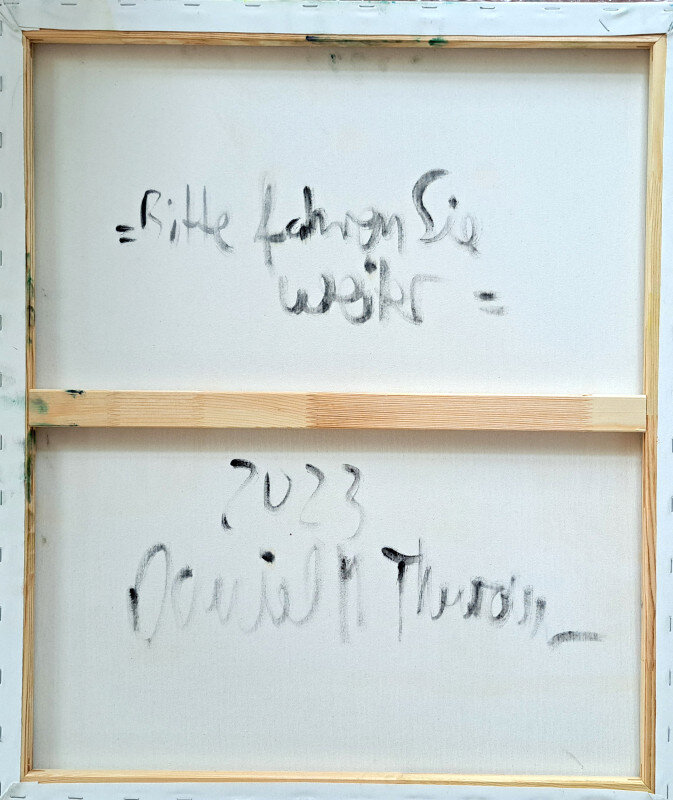 =Bitte fahren Sie
weiter =
2023
Daniel M Thurau_